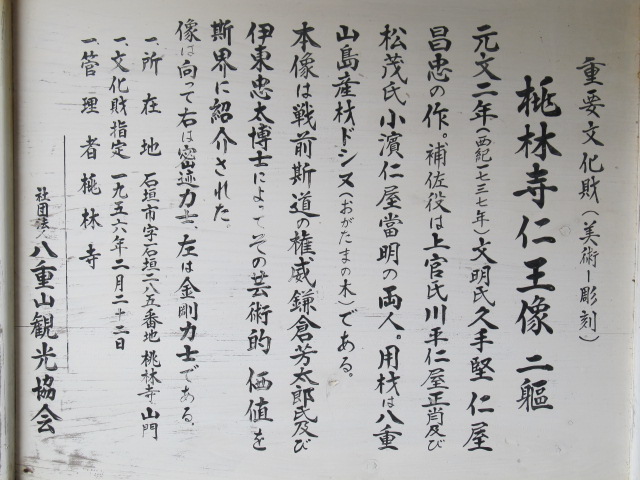 重要文化財（美術ー彫刻）
桃林寺仁王像 二軀
元文二年（西紀一七三七年）文明氏久手堅仁屋
昌忠の作。補佐役は上官氏川平仁屋正肖及び
松茂氏小濱仁屋當明の両人。用材は八重
山島産材ドシヌ（おがたまの木）である。
本像は戦前斯道の権威鎌倉芳太郎氏及び
伊東忠太博士によってその芸術的価値を
斯界に紹介された。
像は向って右は密迹力士、左は金剛力士である。
一、所在地 石垣市字石垣二八五番地 桃林寺山門
一、文化財指定 一九五六年二月二十二日
一、管理者 桃林寺
社団法人 八重山観光協会